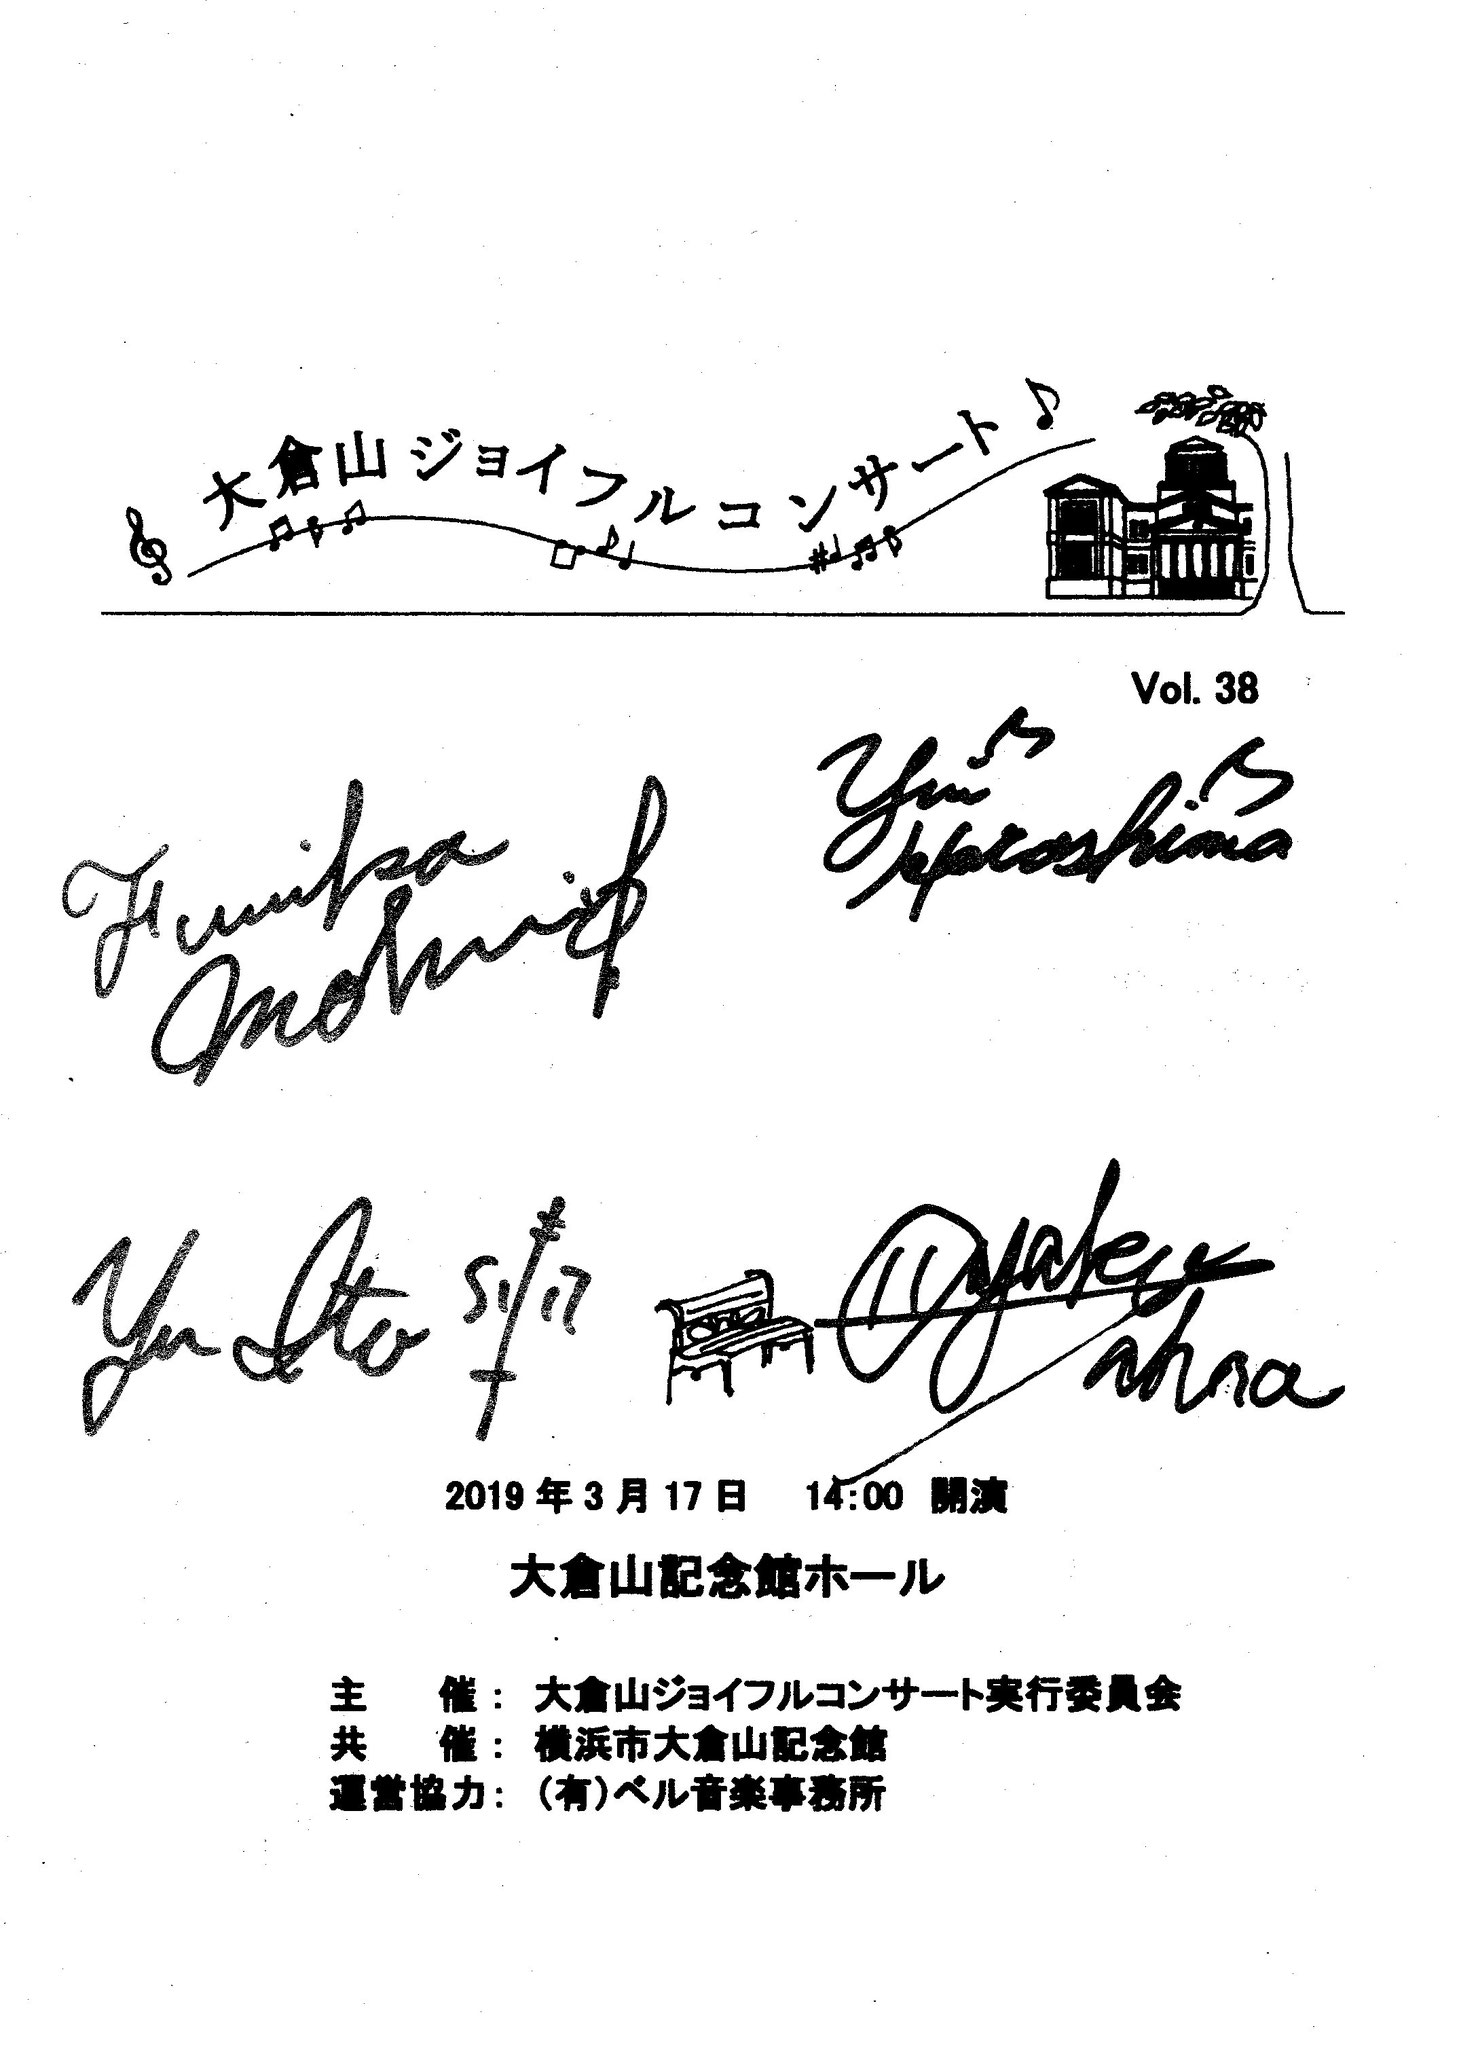 大倉山ジョイフルコンサート
Vol. 38
Yui
Kuroshima
Fumika
Mohri
Yu Ito
2019年3月17日 14:00 開演
大倉山記念館ホール
主 催： 大倉山ジョイフルコンサート実行委員会
共 催： 横浜市大倉山記念館
運営協力： （有）ベル音楽事務所